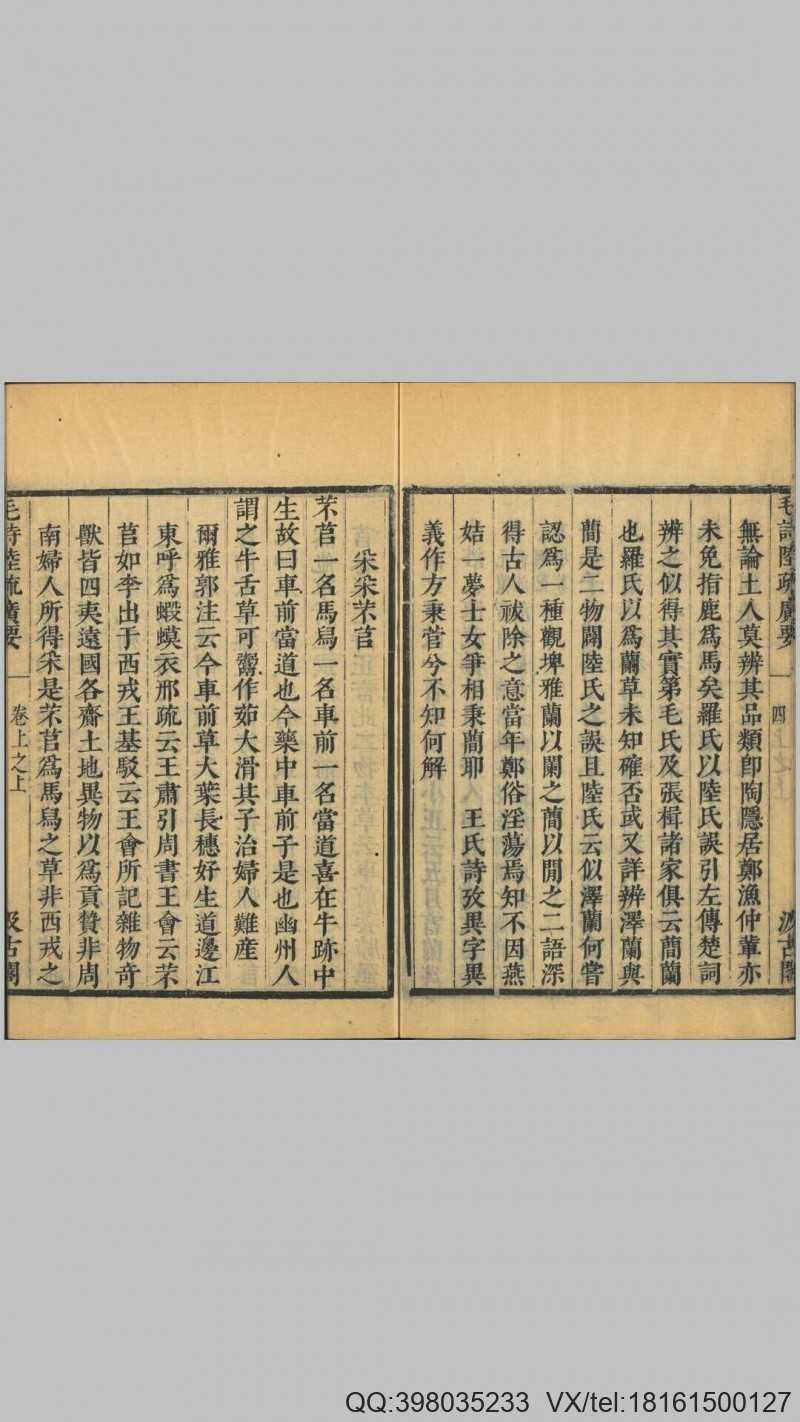 毛詩陸疏廣要 四 汲古閣
無論土人莫辨其品類卽陶隱居鄭漁仲輩亦
未免指鹿爲馬矣羅氏以陸氏誤引左傳楚詞
辨之似得其實第毛氏及張楫諸家俱云蕑蘭
也羅氏以爲蘭草未知確否或又詳辨澤蘭與
蕑是二物闢陸氏之誤且陸氏云似澤蘭何嘗
認爲一種觀埤雅蘭以闌之蕑以閒之二語深
得古人祓除之意當年鄭俗淫蕩焉知不因燕
姞一夢士女爭相秉蕑耶 王氏詩攷異字異
義作方秉菅兮不知何解
采采芣苢
芣苢一名馬舄一名車前一名當道喜在牛跡中
生故曰車前當道也今藥中車前子是也幽州人
謂之牛舌草可鬻作茹大滑其子治婦人難產
爾雅郭注云今車前草大葉長穗好生道邊江
東呼爲蝦蟆衣邢疏云王肅引周書王會云芣
苢如李出于西戎王基駁云王會所記雜物奇
獸皆四夷遠國各齎土地異物以爲貢贄非周
南婦人所得采是芣苢爲馬舄之草非西戎之
毛詩陸疏廣要 卷上之上 汲古閣
QQ:398035233 VX/tel:18161500127